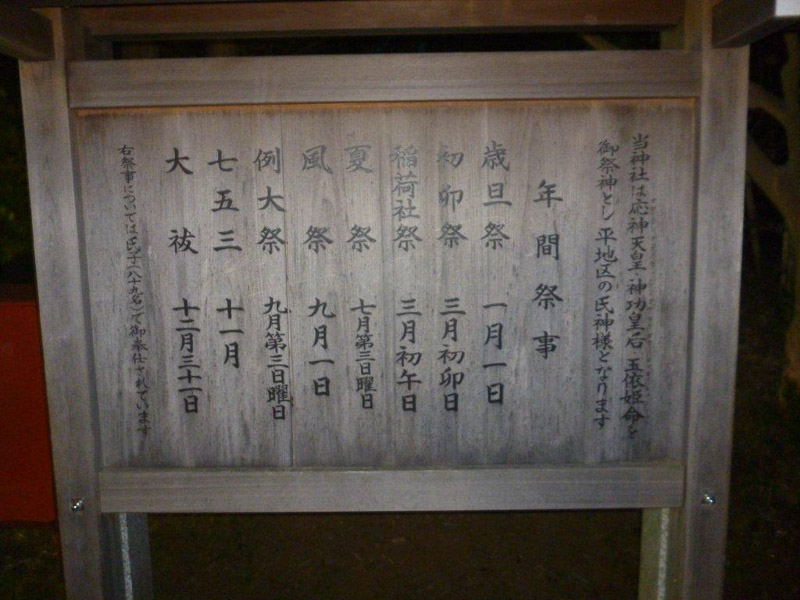 当神社は応神天皇 神功皇后 玉依姫命を
御祭神とし 平地区の氏神様となります
年間祭事
歳旦祭 一月一日
初卯祭 三月初卯日
稲荷社祭 三月初午日
夏祭 七月第三日曜日
風祭 九月一日
例大祭 九月第三日曜日
七五三 十一月
大祓 十二月三十一日
右祭事については氏子(八十九名)で御奉仕されています